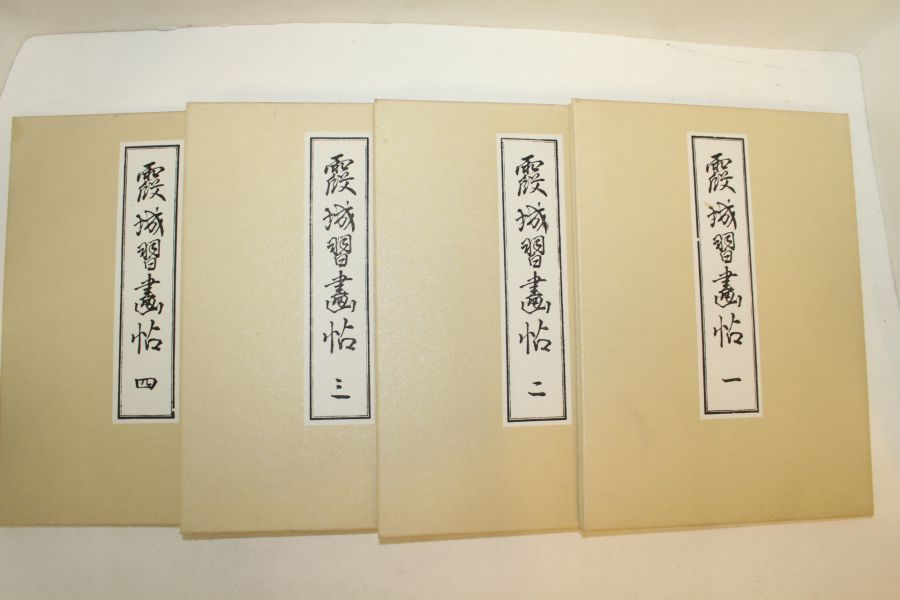 霞城習畫帖 一
霞城習畫帖 二
霞城習畫帖 三
霞城習畫帖 四